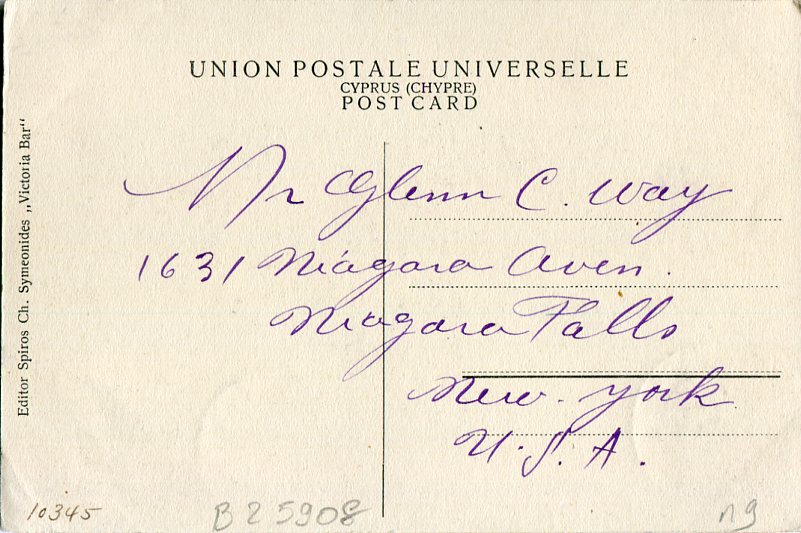 UNION POSTALE UNIVERSELLE
CYPRUS (CHYPRE)
POST CARD
Editor Spiros Ch. Symeonides „Victoria Bar“
Mr Glenn C. Way
1631 Niagara Aven.
Niagara Falls
New. York
U.S.A.
10345
B25908
n9